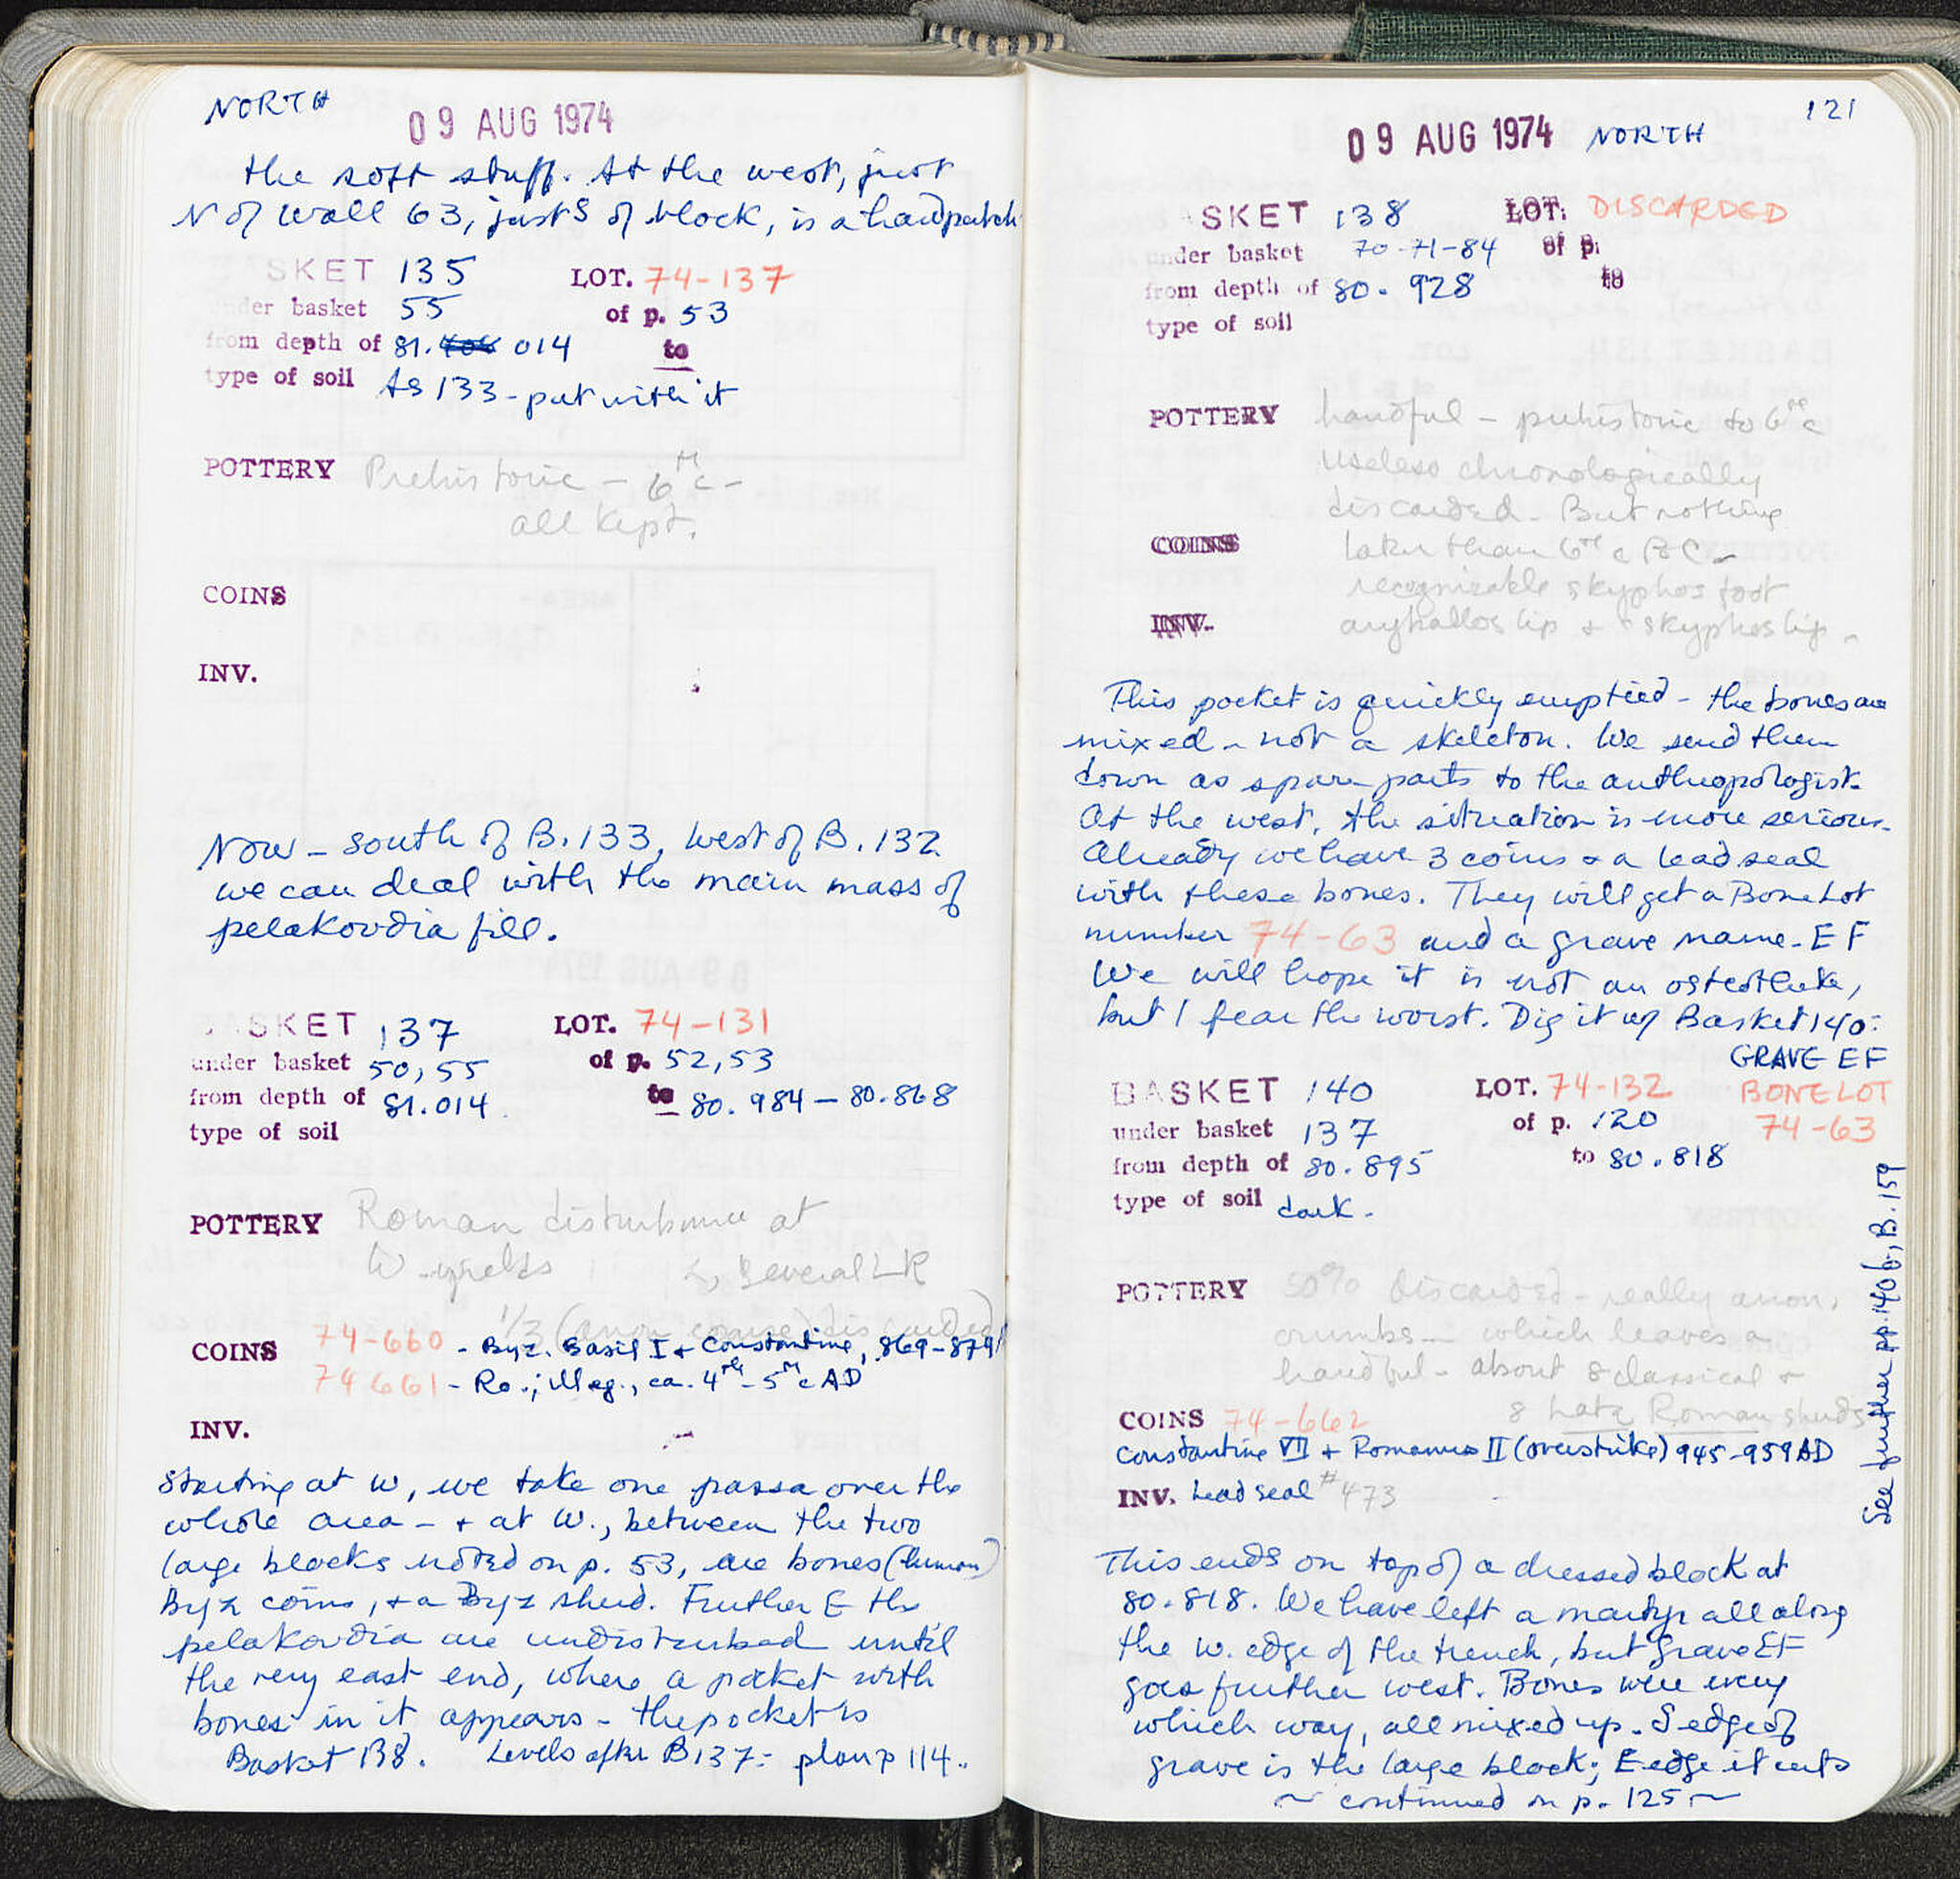 NORTH
09 AUG 1974
the soft stuff. At the west, just
N of wall 63, just S of block, is a hard patch
SKET 135 LOT. 74-137
under basket 55 of p. 53
from depth of 81. 014 to
type of soil As 133 - put with it
POTTERY Prehistoric - 6th c -
all kept.
COINS
INV.
Now - south of B.133, west of B.132
we can deal with the main mass of
pelakoudia fill.
BASKET 137 LOT. 74-131
under basket 50, 55 of p. 52, 53
from depth of 81.014. to 80.984 - 80.868
type of soil
POTTERY Roman disturbance at
W yields several LR
1/3 (anon coarse) discarded
COINS 74-660 - Byz. Basil I + Constantine, 869-879
74 661 - Ro.; illeg., ca. 4th - 5th c AD
INV. -
Starting at W, we take one passa over the
whole area - + at W., between the two
large blocks noted on p. 53, are bones (human)
Byz coins, + a Byz sherd. Further E the
pelakoudia are undisturbed until
the very east end, where a pocket with
bones in it appears - the pocket is
Basket 138. Levels after B137 = plan p 114.
121
09 AUG 1974 NORTH
ASKET 138 LOT: DISCARDED
under basket 70-71-84 of p.
from depth of 80.928 to
type of soil
POTTERY handful - prehistoric to 6th c
useless chronologically
discarded - But nothing
COINS later than 6th c BC -
recognizable skyphos foot
INV. aryballos lip + skyphos lip -
This pocket is quickly emptied - the bones are
mixed - not a skeleton. We send them
down as spare parts to the anthropologist.
At the west, the situation is more serious.
Already we have 3 coins + a lead seal
with these bones. They will get a Bone Lot
number 74-63 and a grave name - EF
We will hope it is not an osteotheke,
but I fear the worst. Dig it w/ Basket 140:
GRAVE EF
BASKET 140 LOT. 74-132 BONE LOT
under basket 137 of p. 120 74-63
from depth of 80.895 to 80.818
type of soil dark.
POTTERY 50% discarded - really anon,
crumbs - which leaves a
handful - about 8 classical +
8 Late Roman sherds
COINS 74-662
Constantine VII + Romanus II (overstrike) 945-959 AD
INV. Lead seal #473
See further pp. 140 ff, B. 159
This ends on top of a dressed block at
80.818. We have left a martyr all along
the W. edge of the trench, but Grave EF
goes further west. Bones were every
which way, all mixed up. S edge of
grave is the large block; E edge it cuts
~ continued on p. 125 ~